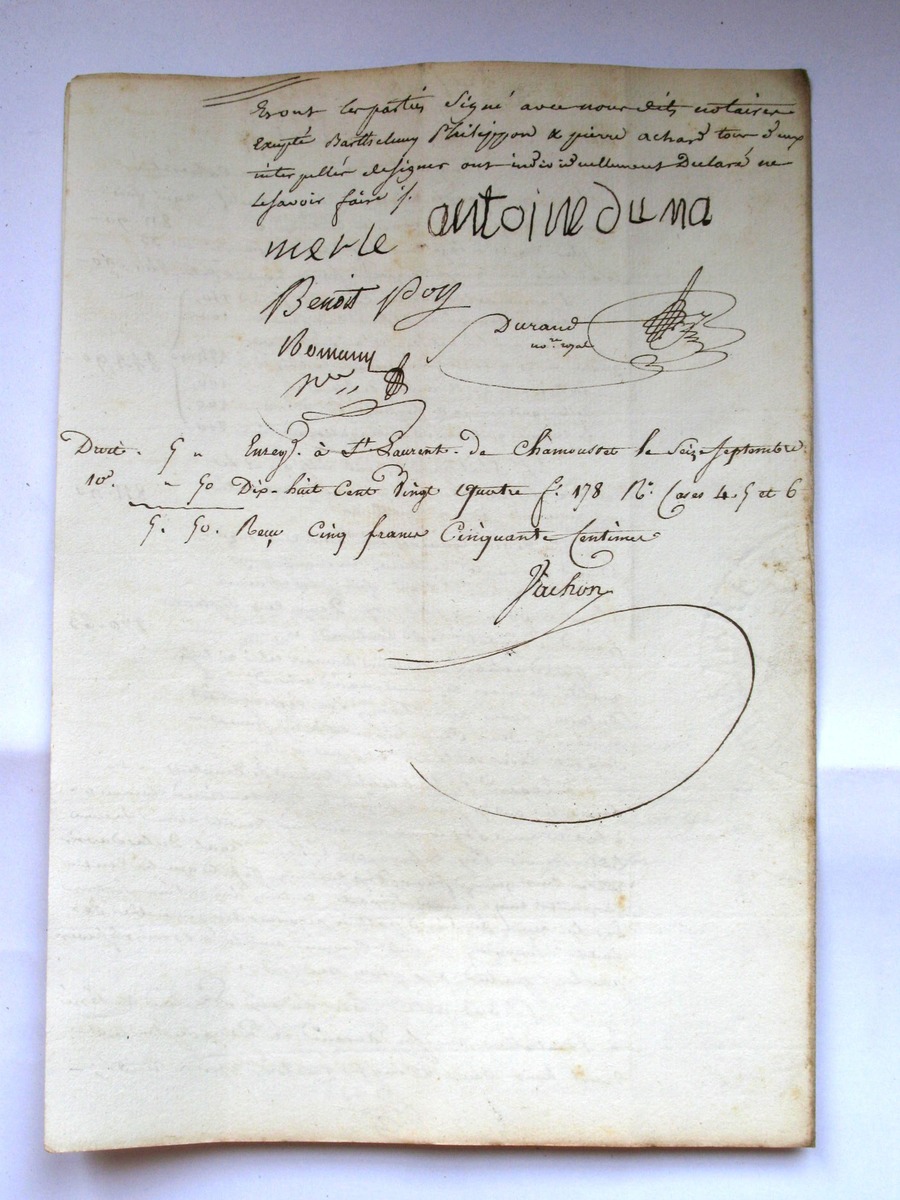 Et ont les parties Signé avec nous dits notaires
Excepté Barthelemy Philippon & pierre achard tous d'eux
interpellés de signer ont individuellement Declaré ne
le savoir faire ./.
merle antoine duna
Benoit Poy
Durand
no.re royal
Romany
n.re
Droit . 5 " Enreg. à St Laurent - de Chamousset le Seize Septembre
10e. " 50 Dix-huit Cent Vingt quatre f.o 178 R.o Cases 4. 5 et 6
5. 50. Recu Cinq francs Cinquante Centimes
Vachon